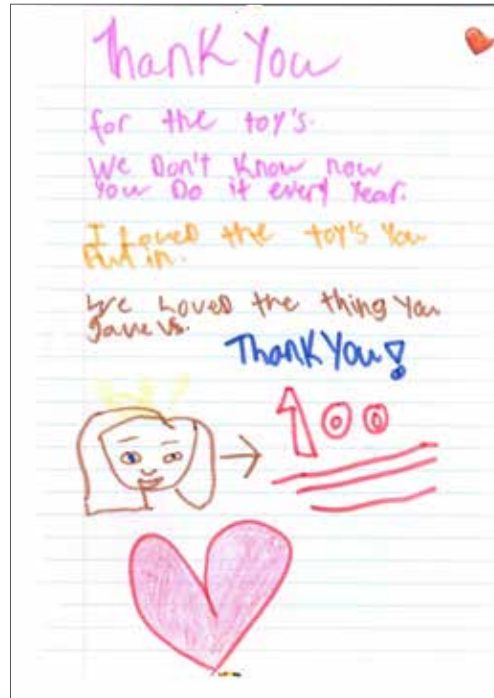 Thank You
for the toy's.
We Don't Know how
You Do it every Year.
I Loved the toy's You
Put in.
We Loved the thing You
gave us.
Thank You!
100